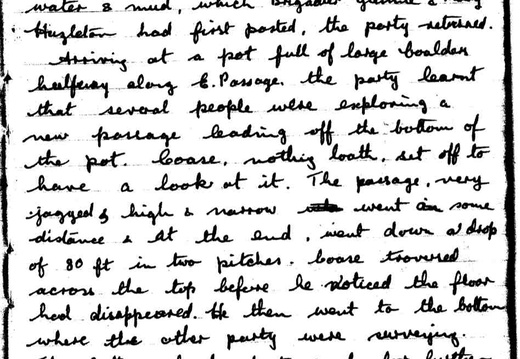 water & mud, which Brigadier
Hazleton had first posted, the party returned.
Arriving at a pot full of large boulders
halfway along E. Passage, the party learnt
that several people were exploring a
new passage leading off the bottom of
the pot. Coase, nothing loath, set off to
have a look at it. The passage, very
jagged & high & narrow went in some
distance & at the end, went down a drop
of 80 ft in two pitches. Coase traversed
across the top before he noticed the floor
had disappeared. He then went to the bottom
where the other party were surveying.